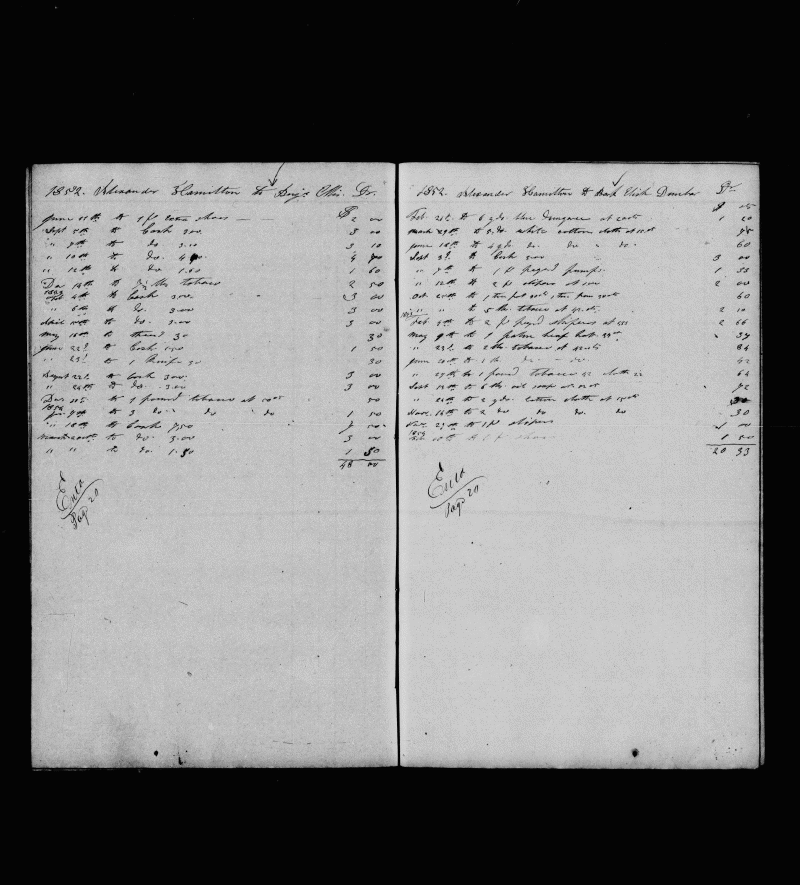 1852. Alexander Hamilton to Benj's Dr.
$
June to 1 pr shoes 2 00
Sept 5th to Cash 3.00 3 00
" 7th to do 3.10 3 10
" 10th to do. 4 70
" 12th to do 1.60 1 60
Dec 14th to tobacco 2 50
1853
Feb 4th to Cash 3.00 3 00
" 6th to do. 3.00 3 00
April to do. 3.00 3 00
May 16th to thread 30 30
June 22d to Cash 1.50 1 50
" 23d to 1 Knife 30 30
August 22d to Cash 3.00 3 00
" 24th to do. 3.00 3 00
Dec. to 1 pound tobacco at 50cts 50
1854
Jan 7th to 3 do do do 1 50
" 18th to Cash 7.50 7 50
March 20th to do. 3.00 3 00
" " to do. 1.50 1 50
48 00
Page 20
1852. Alexander Hamilton to Dunbar Dr
$ cts
Feb. 21st to 6 yds blue Dungaree at 20cts 1 20
March 29th to yds white cotton cloth at 75
June 18th to 4 yds do. do do. 60
Sept 3d to Cash 3.00 3 00
" 7th to 1 pr peged pumps 1 33
" 12th to 2 pr slipers at 1.00 2 00
Oct. 20th to 1 tin pot 1 tin pan 60
" " to 5 lbs tobacco at 42cts 2 10
1853
Feb. to 2 pr peged slipers at 133 2 66
May 9th to 1 palm leaf hat 37
" 23d to 2 lbs tobacco at 42cts 84
June to 1 lb do. do. 42
" 27th to 1 pound tobacco 42 cloth 22 64
Sept to 6 lbs soap at 12cts 72
" to 2 yds cotton cloth at 15cts 30
Nov. 16th to 2 do do do. do 30
Nov. 27th to 1 pr slipers 1 00
1854
to 1 pr shoes 1 50
20 33
Page 20